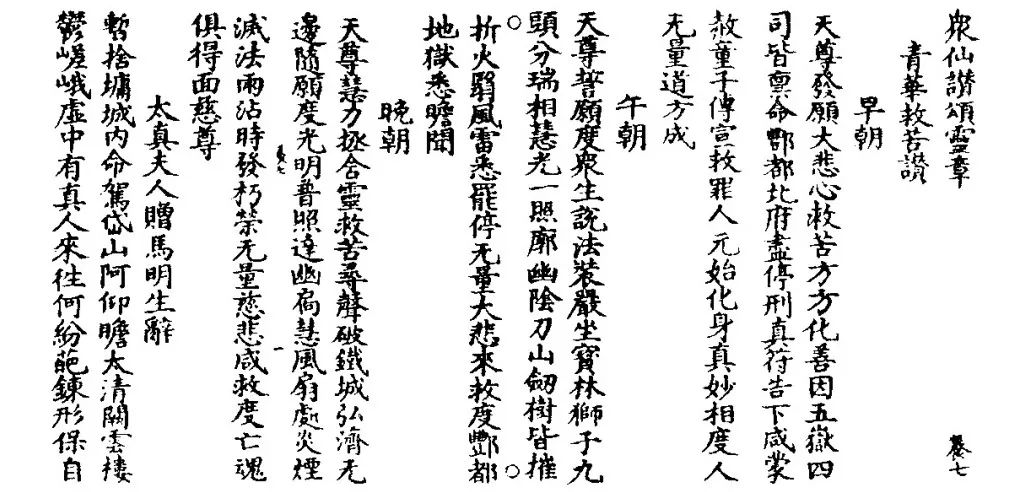 眾仙讃頌靈章 卷七
青華救苦讃
早朝
天尊發願大悲心救苦方方化善因五嶽四
司皆稟命酆都北府盡停刑真符告下咸蒙
赦童子傳宣救罪人元始化身真妙相度人
无量道方成
午朝
天尊誓願度眾生說法裝嚴坐寶林獅子九
頭分瑞相慧光一照廓幽陰刀山劒樹皆摧
折火翳風雷悉罷停无量大悲來救度酆都
地獄悉瞻聞
晚朝
天尊慧力拯含靈救苦尋聲破鐵城弘濟无
邊隨願度光明普照達幽扃慧風扇處炎煙
滅法雨沾時發朽榮无量慈悲咸救度亡魂
俱得面慈尊
太真夫人贈馬明生辭
暫捨墉城內命駕岱山阿仰瞻太清闕雲樓
鬱嵯峨虛中有真人來往何紛葩鍊形保自